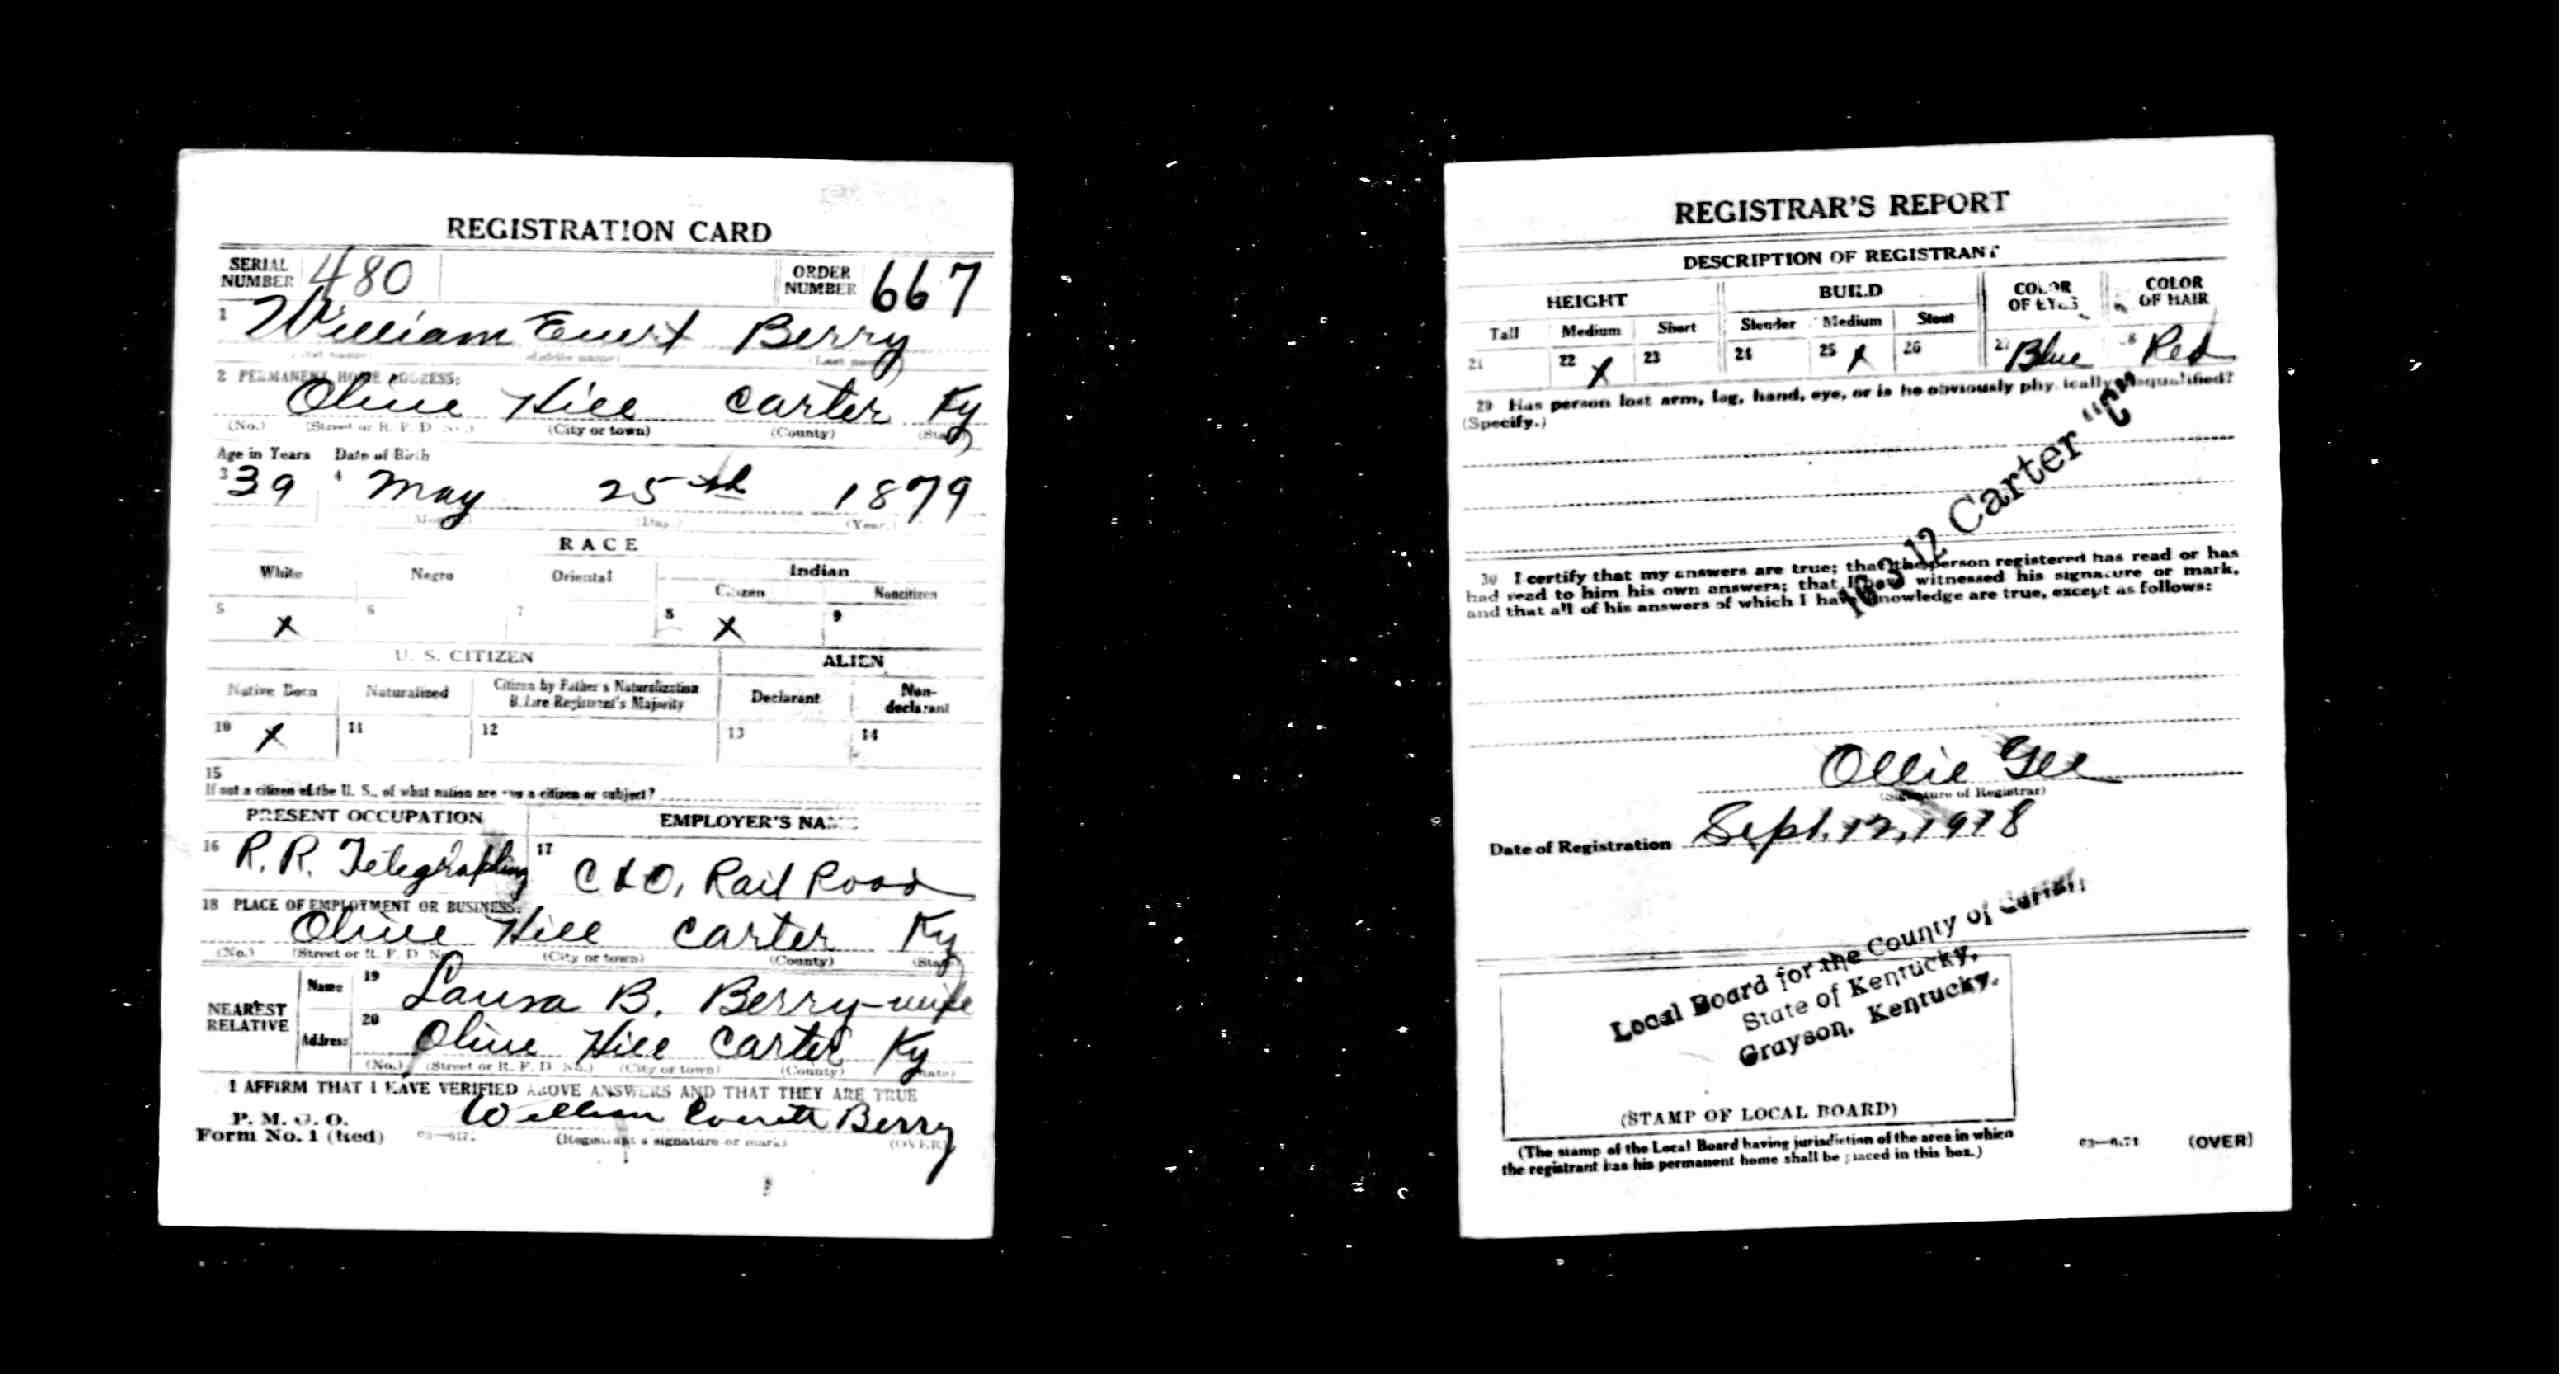 REGISTRATION CARD
SERIAL NUMBER 480 ORDER NUMBER 667
1 William Evert Berry
(Last name)
2 PERMANENT HOME ADDRESS:
Olive Hill Carter Ky
(No.) (Street or R. F. D. No.) (City or town) (County) (State)
Age in Years Date of Birth
3 39 4 May 25th 1879
(Month.) (Day.) (Year.)
RACE
White Negro Oriental Indian
Citizen Noncitizen
5 X 6 7 8 X 9
U. S. CITIZEN ALIEN
Native Born Naturalized Citizen by Father's Naturalization Before Registrant's Majority Declarant Non-declarant
10 X 11 12 13 14
15
If not a citizen of the U. S., of what nation are you a citizen or subject?
PRESENT OCCUPATION EMPLOYER'S NAME
16 R. R. 17 C & O, Rail Road
18 PLACE OF EMPLOYMENT OR BUSINESS:
Olive Hill Carter Ky
(No.) (Street or R. F. D. No.) (City or town) (County) (State)
NEAREST RELATIVE
Name 19 Laura B. Berry-wife
Address 20 Olive Hill Carter Ky
(No.) (Street or R. F. D. No.) (City or town) (County) (State)
I AFFIRM THAT I HAVE VERIFIED ABOVE ANSWERS AND THAT THEY ARE TRUE
P. M. G. O.
Form No. 1 (Red) William Everett Berry
(Registrant's signature or mark) (OVER)
REGISTRAR'S REPORT
DESCRIPTION OF REGISTRANT
HEIGHT BUILD COLOR OF EYES COLOR OF HAIR
Tall Medium Short Slender Medium Stout
21 22 X 23 24 25 X 26 27 Blue 28 Red
29 Has person lost arm, leg, hand, eye, or is he obviously physically disqualified?
(Specify.)
16-3-12 Carter "C"
30 I certify that my answers are true; that the person registered has read or has
had read to him his own answers; that I have witnessed his signature or mark,
and that all of his answers of which I have knowledge are true, except as follows:
Ollie Gee
(Signature of Registrar)
Date of Registration Sept. 12, 1918
Local Board for the County of Carter,
State of Kentucky,
Grayson, Kentucky.
(STAMP OF LOCAL BOARD)
(The stamp of the Local Board having jurisdiction of the area in which
the registrant has his permanent home shall be placed in this box.)
(OVER)